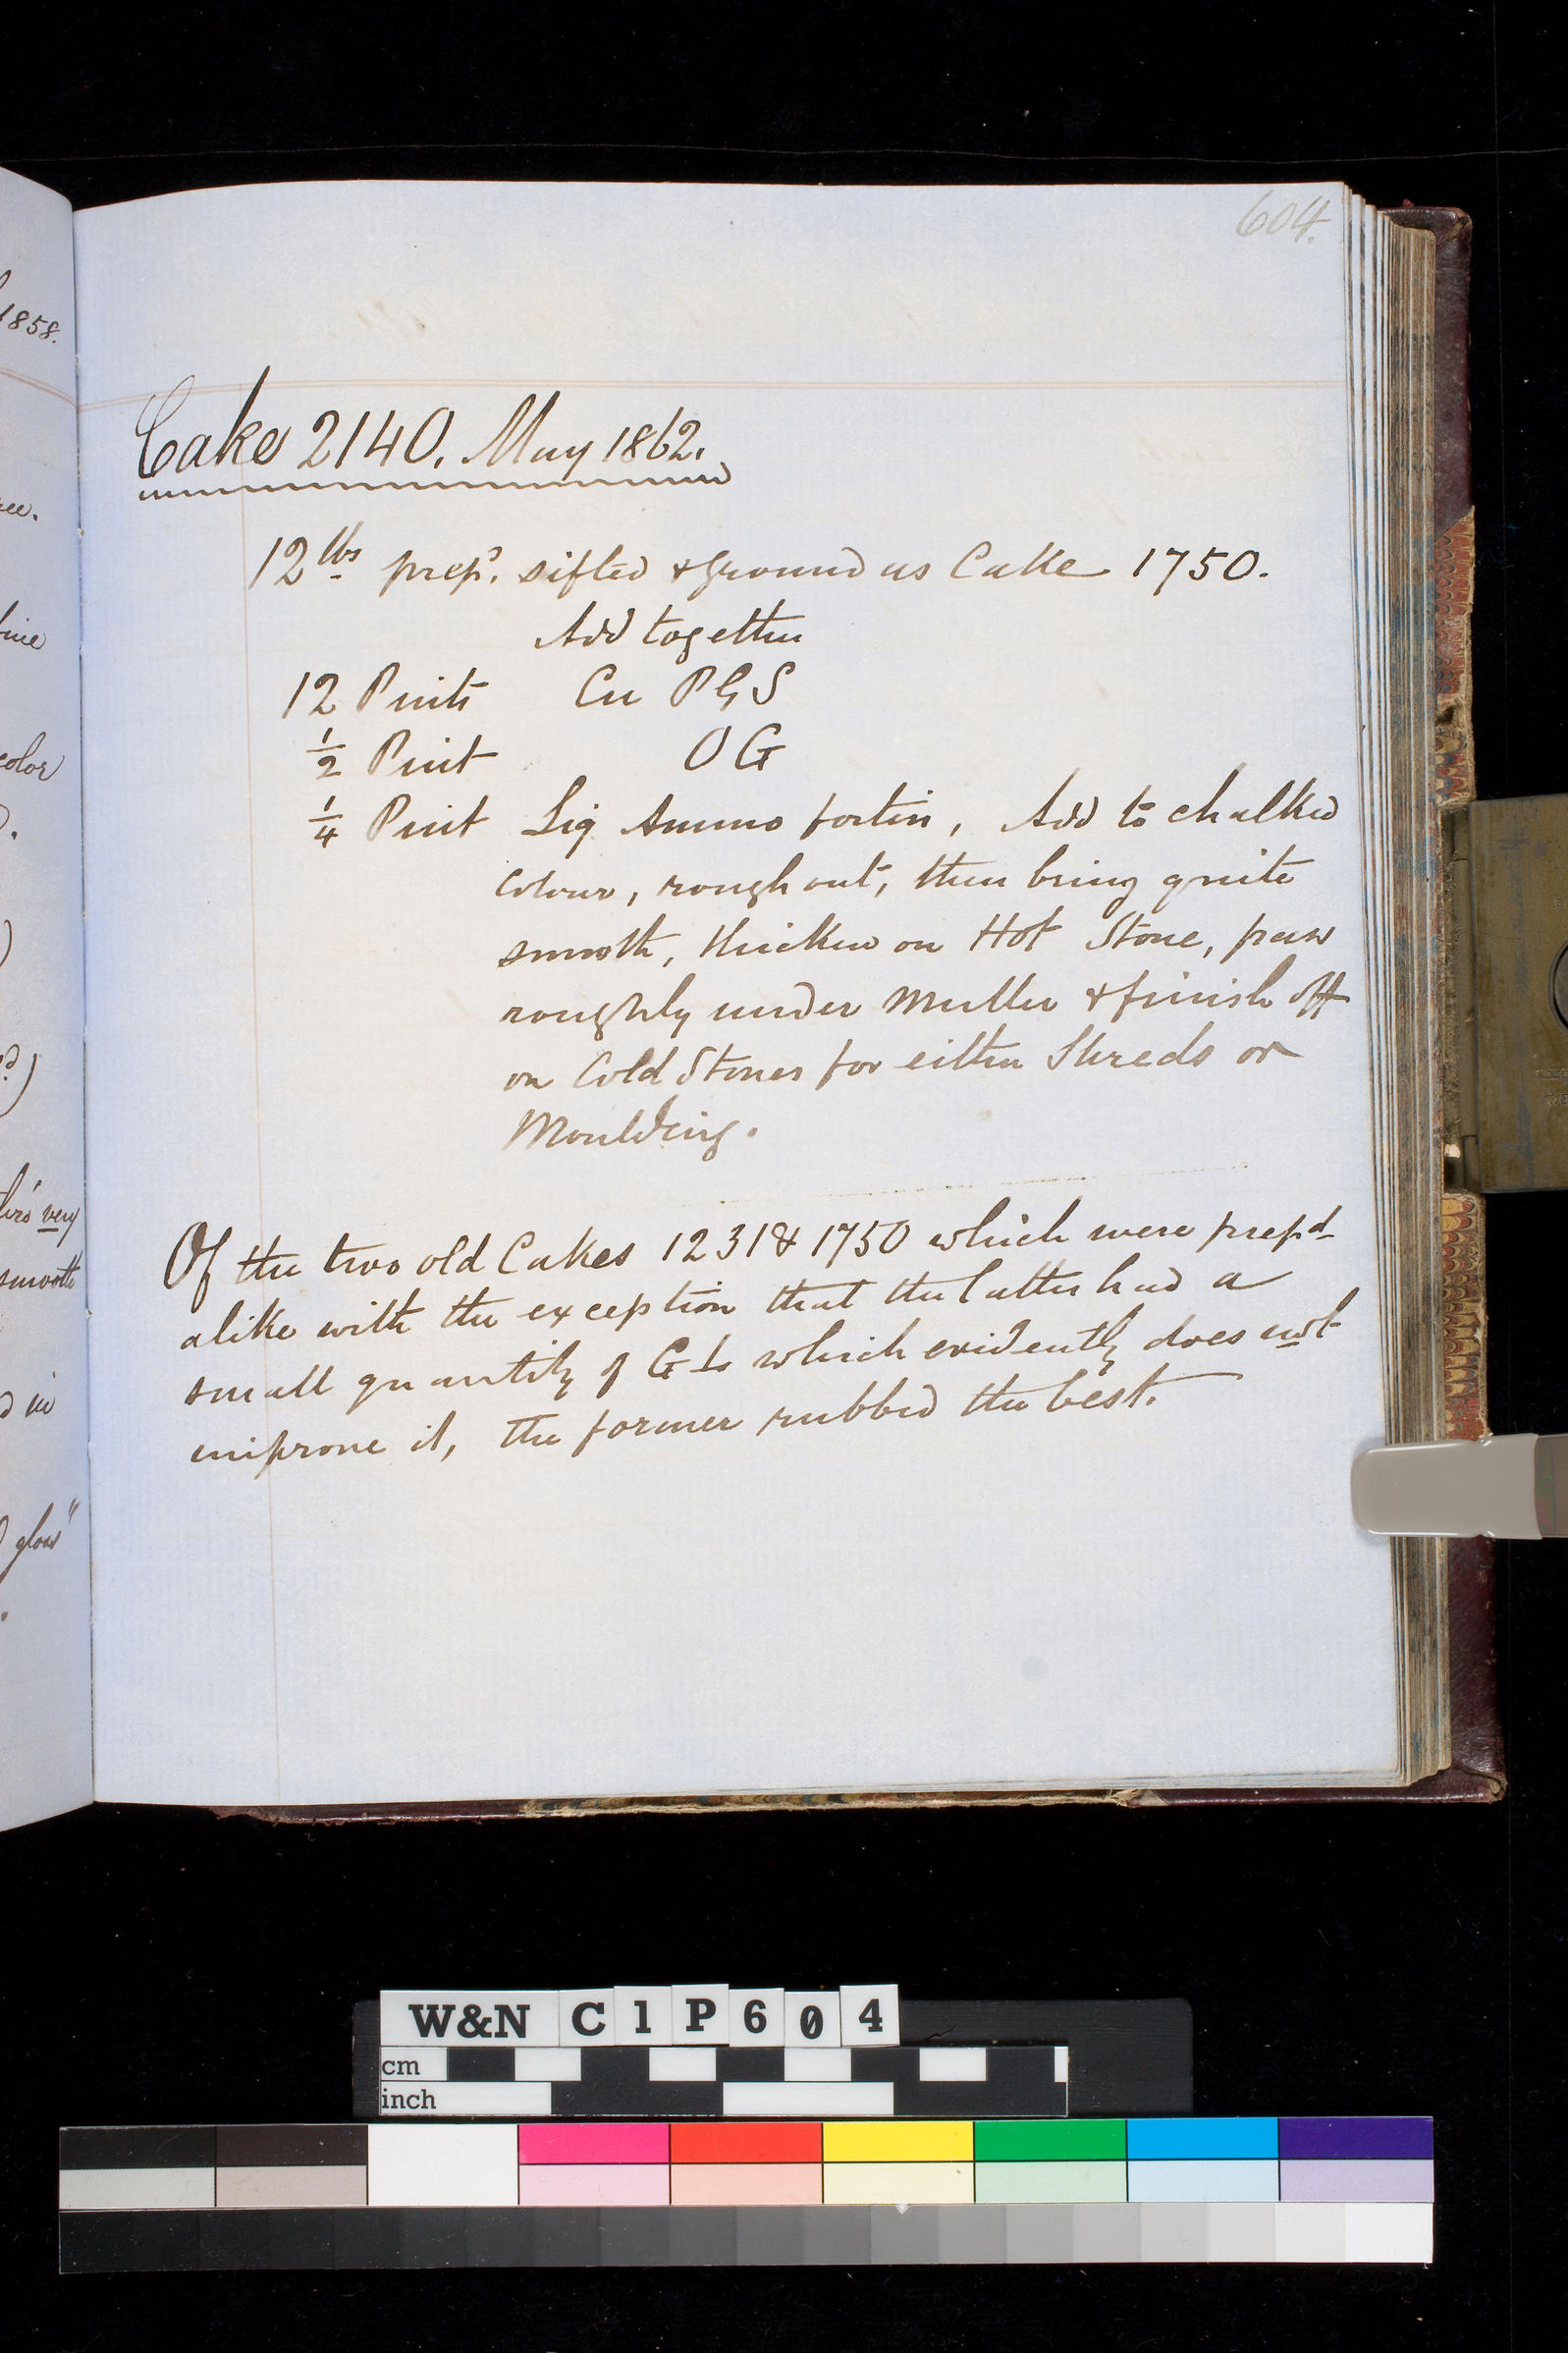 604.
1858.
Cake 2140. May 1862.
12 lbs prepd. sifted & ground as Cake 1750.
Add together
12 Pints Cu P G S
1/2 Pint O G
1/4 Pint Liq Ammo fortis, Add to chalked
colour, rough out, then bring quite
smooth, thicken on Hot Stone, pass
roughly under Muller & finish off
on Cold Stones for either Shreds or
Moulding.
Of the two old Cakes 1231 & 1750 which were prepd
alike with the exception that the latter had a
small quantity of G L which evidently does not
improve it, the former rubbed the best.
color
very
smooth
in
W&N C1P604
cm
inch